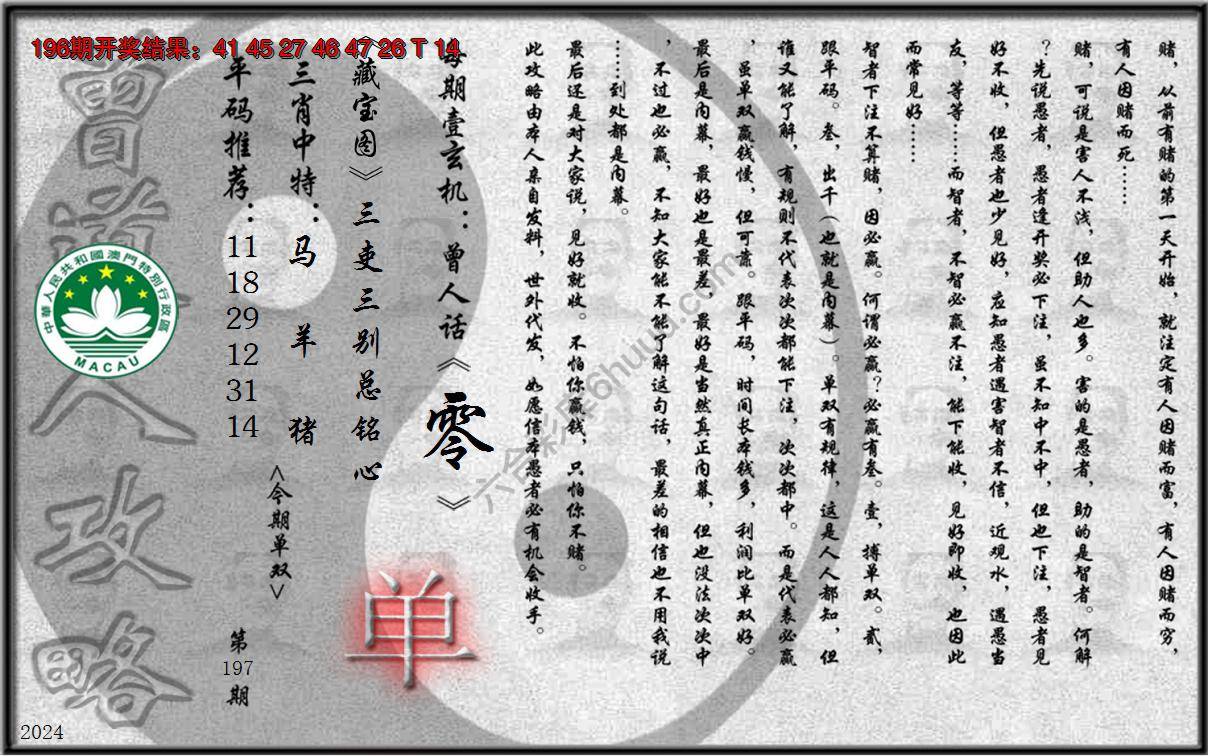 196期开奖结果：41 45 27 46 47 26 T 14
赌，从前有赌的第一天开始，就注定有人因赌而富，有人因赌而穷，
有人因赌而死……
赌，可说是害人不浅，但助人也多。害的是愚者，助的是智者。何解
？先说愚者，愚者逢开奖必下注，虽不知中不中，但也下注，愚者见
好不收，但愚者也少见好，应知愚者遇害智者不信，近观水，遇愚当
友，等等……而智者，不智必赢不注，能下能收，见好即收，也因此
而常见好……
智者下注不算赌，因必赢。何谓必赢？必赢有叁。壹，搏单双。贰，
跟平码。叁，出千（也就是内幕）。单双有规律，这是人人都知，但
谁又能了解，有规则不代表次次都能下注，次次都中。而是代表必赢
，虽单双赢钱慢，但可靠。跟平码，时间长本钱多，利润比单双好。
最后是内幕，最好也是最差，最好是当然真正内幕，但也没法次次中
，不过也必赢，不知大家能不能了解这句话，最差的相信也不用我说
……到处都是内幕。
最后还是对大家说，见好就收。不怕你赢钱，只怕你不赌。
此攻略由本人亲自发料，世外代发，如愿信本愚者必有机会收手。
每期壹玄机：曾人话《零》
《藏宝图》三吏三别总铭心
三肖中特：马 羊 猪
<今期单双>
单
平码推荐：11 18 29 12 31 14
第197期
曾道人攻略
中華人民共和國澳門特別行政區
MACAU
六合彩库6huuu.com
2024